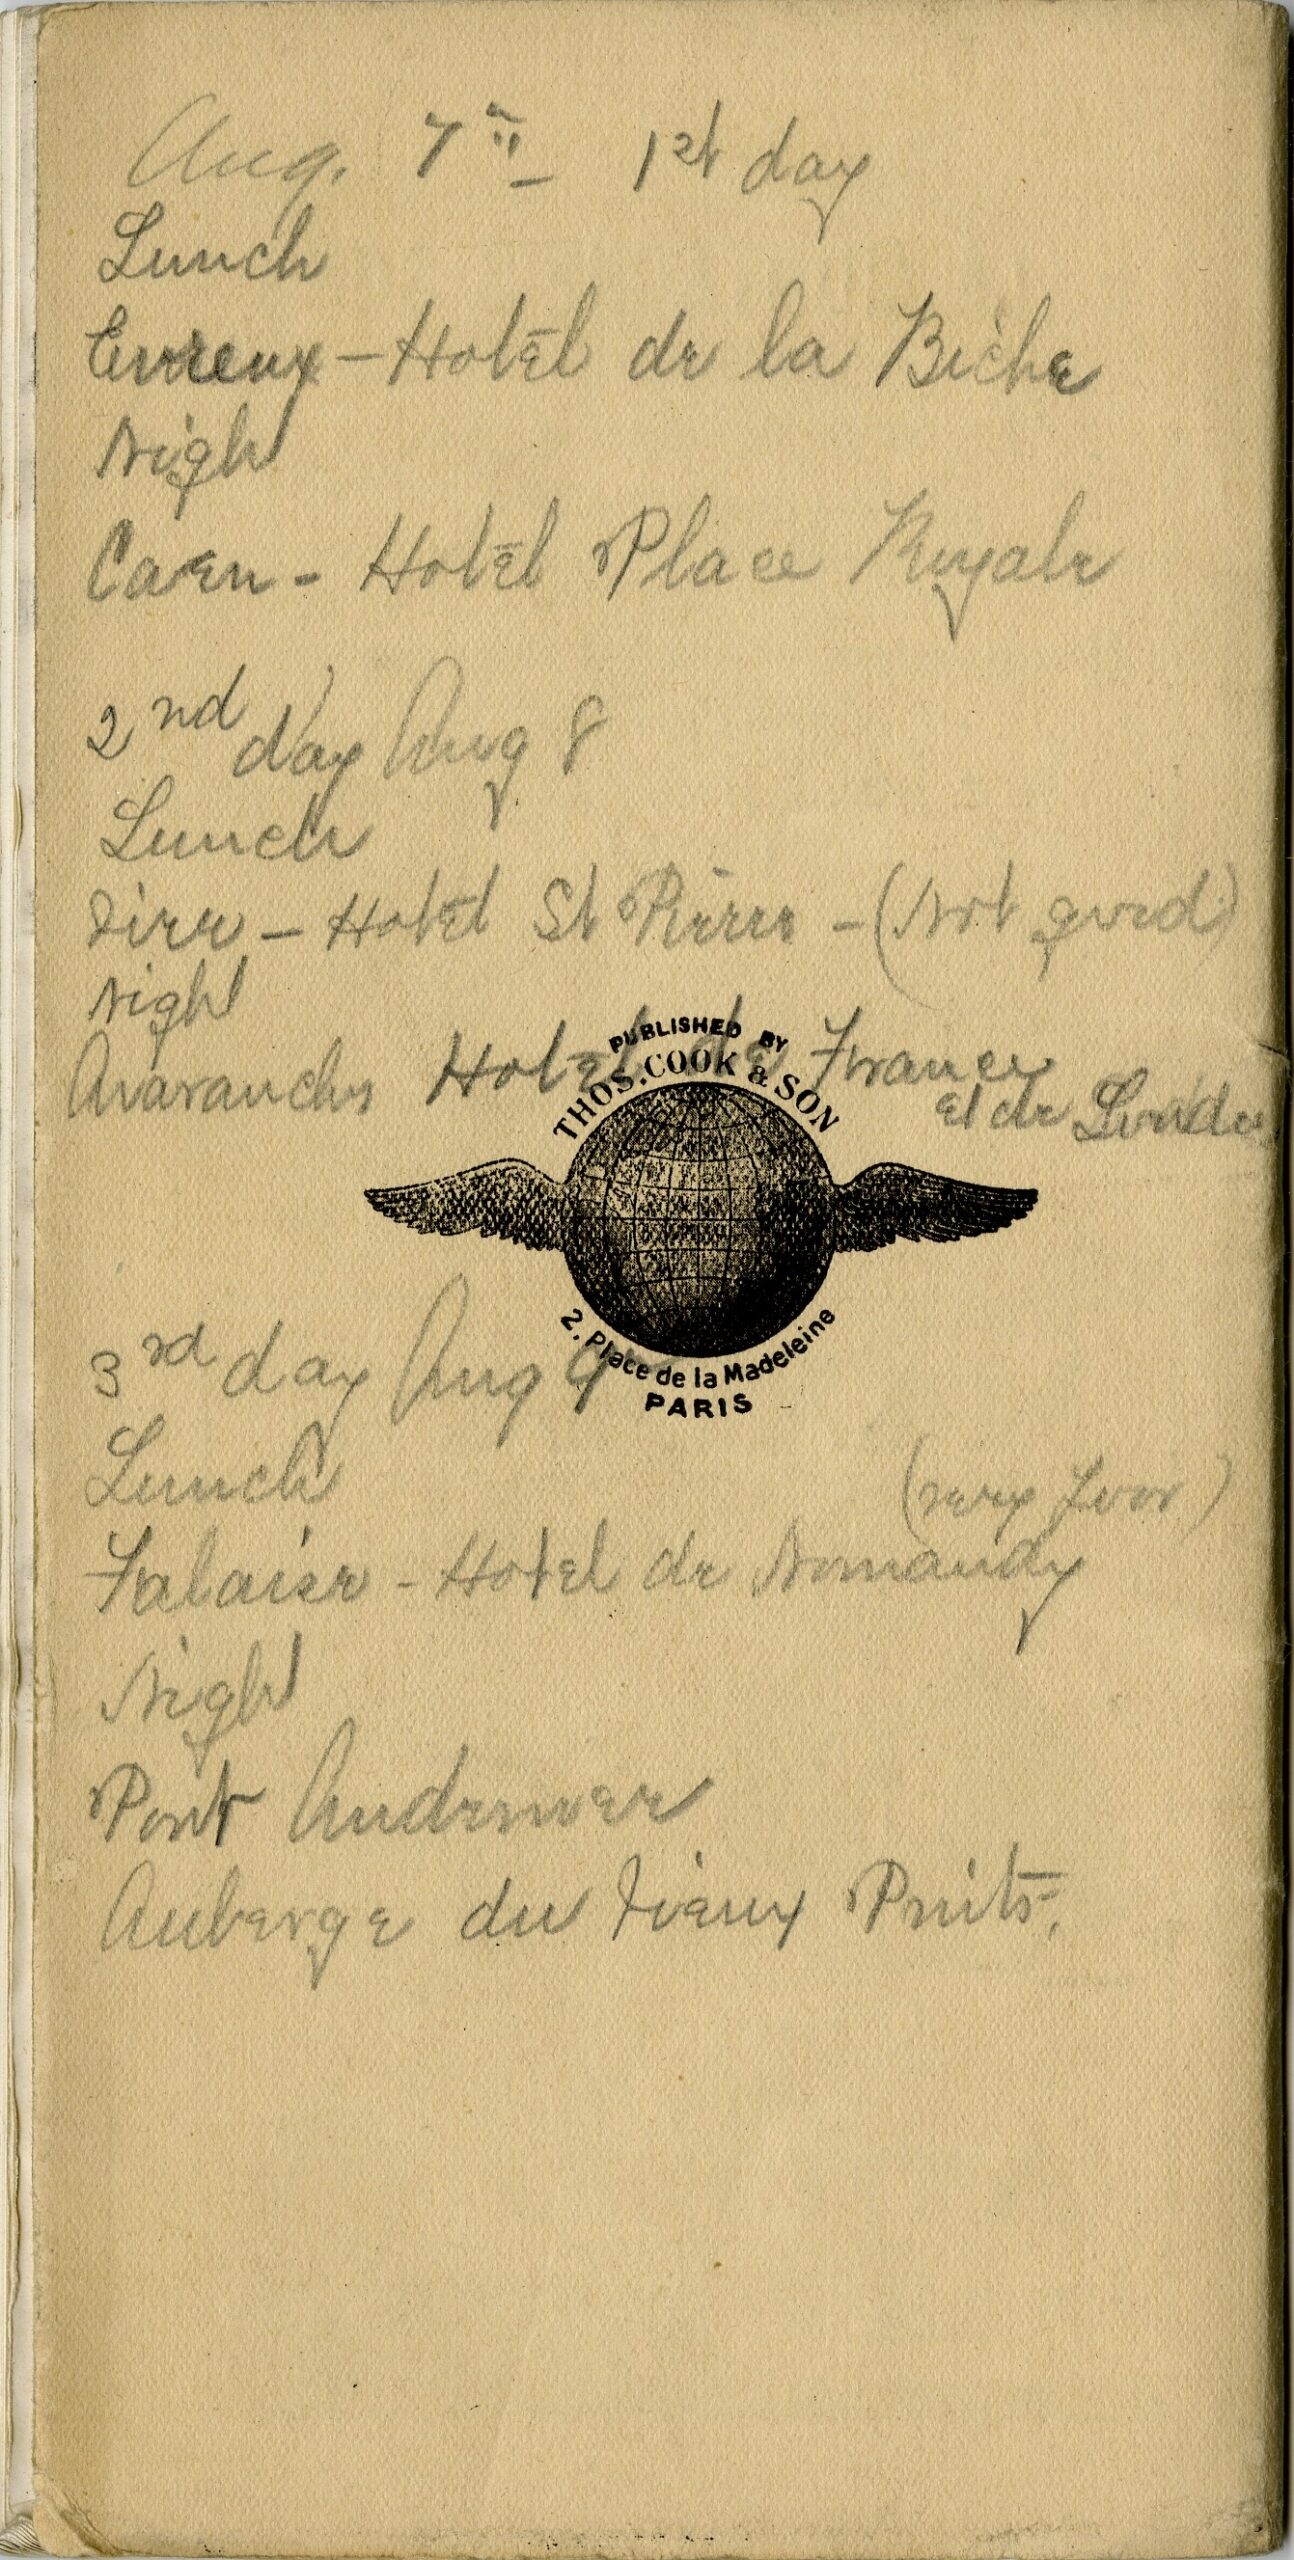 Aug. 7th - 1st day
Lunch
Evreux - Hotel de la Biche
Night
Caen - Hotel Place Royale
2nd day Aug 8
Lunch
Vire - Hotel St Pierre - (Not good)
Night
Avaranches Hotel de France
et de Londres
PUBLISHED BY
THOS. COOK & SON
2, Place de la Madeleine
PARIS
3rd day Aug 9
Lunch
(very poor)
Falaise - Hotel de Normandy
Night
Pont Audemer
Auberge du Vieux Puits.